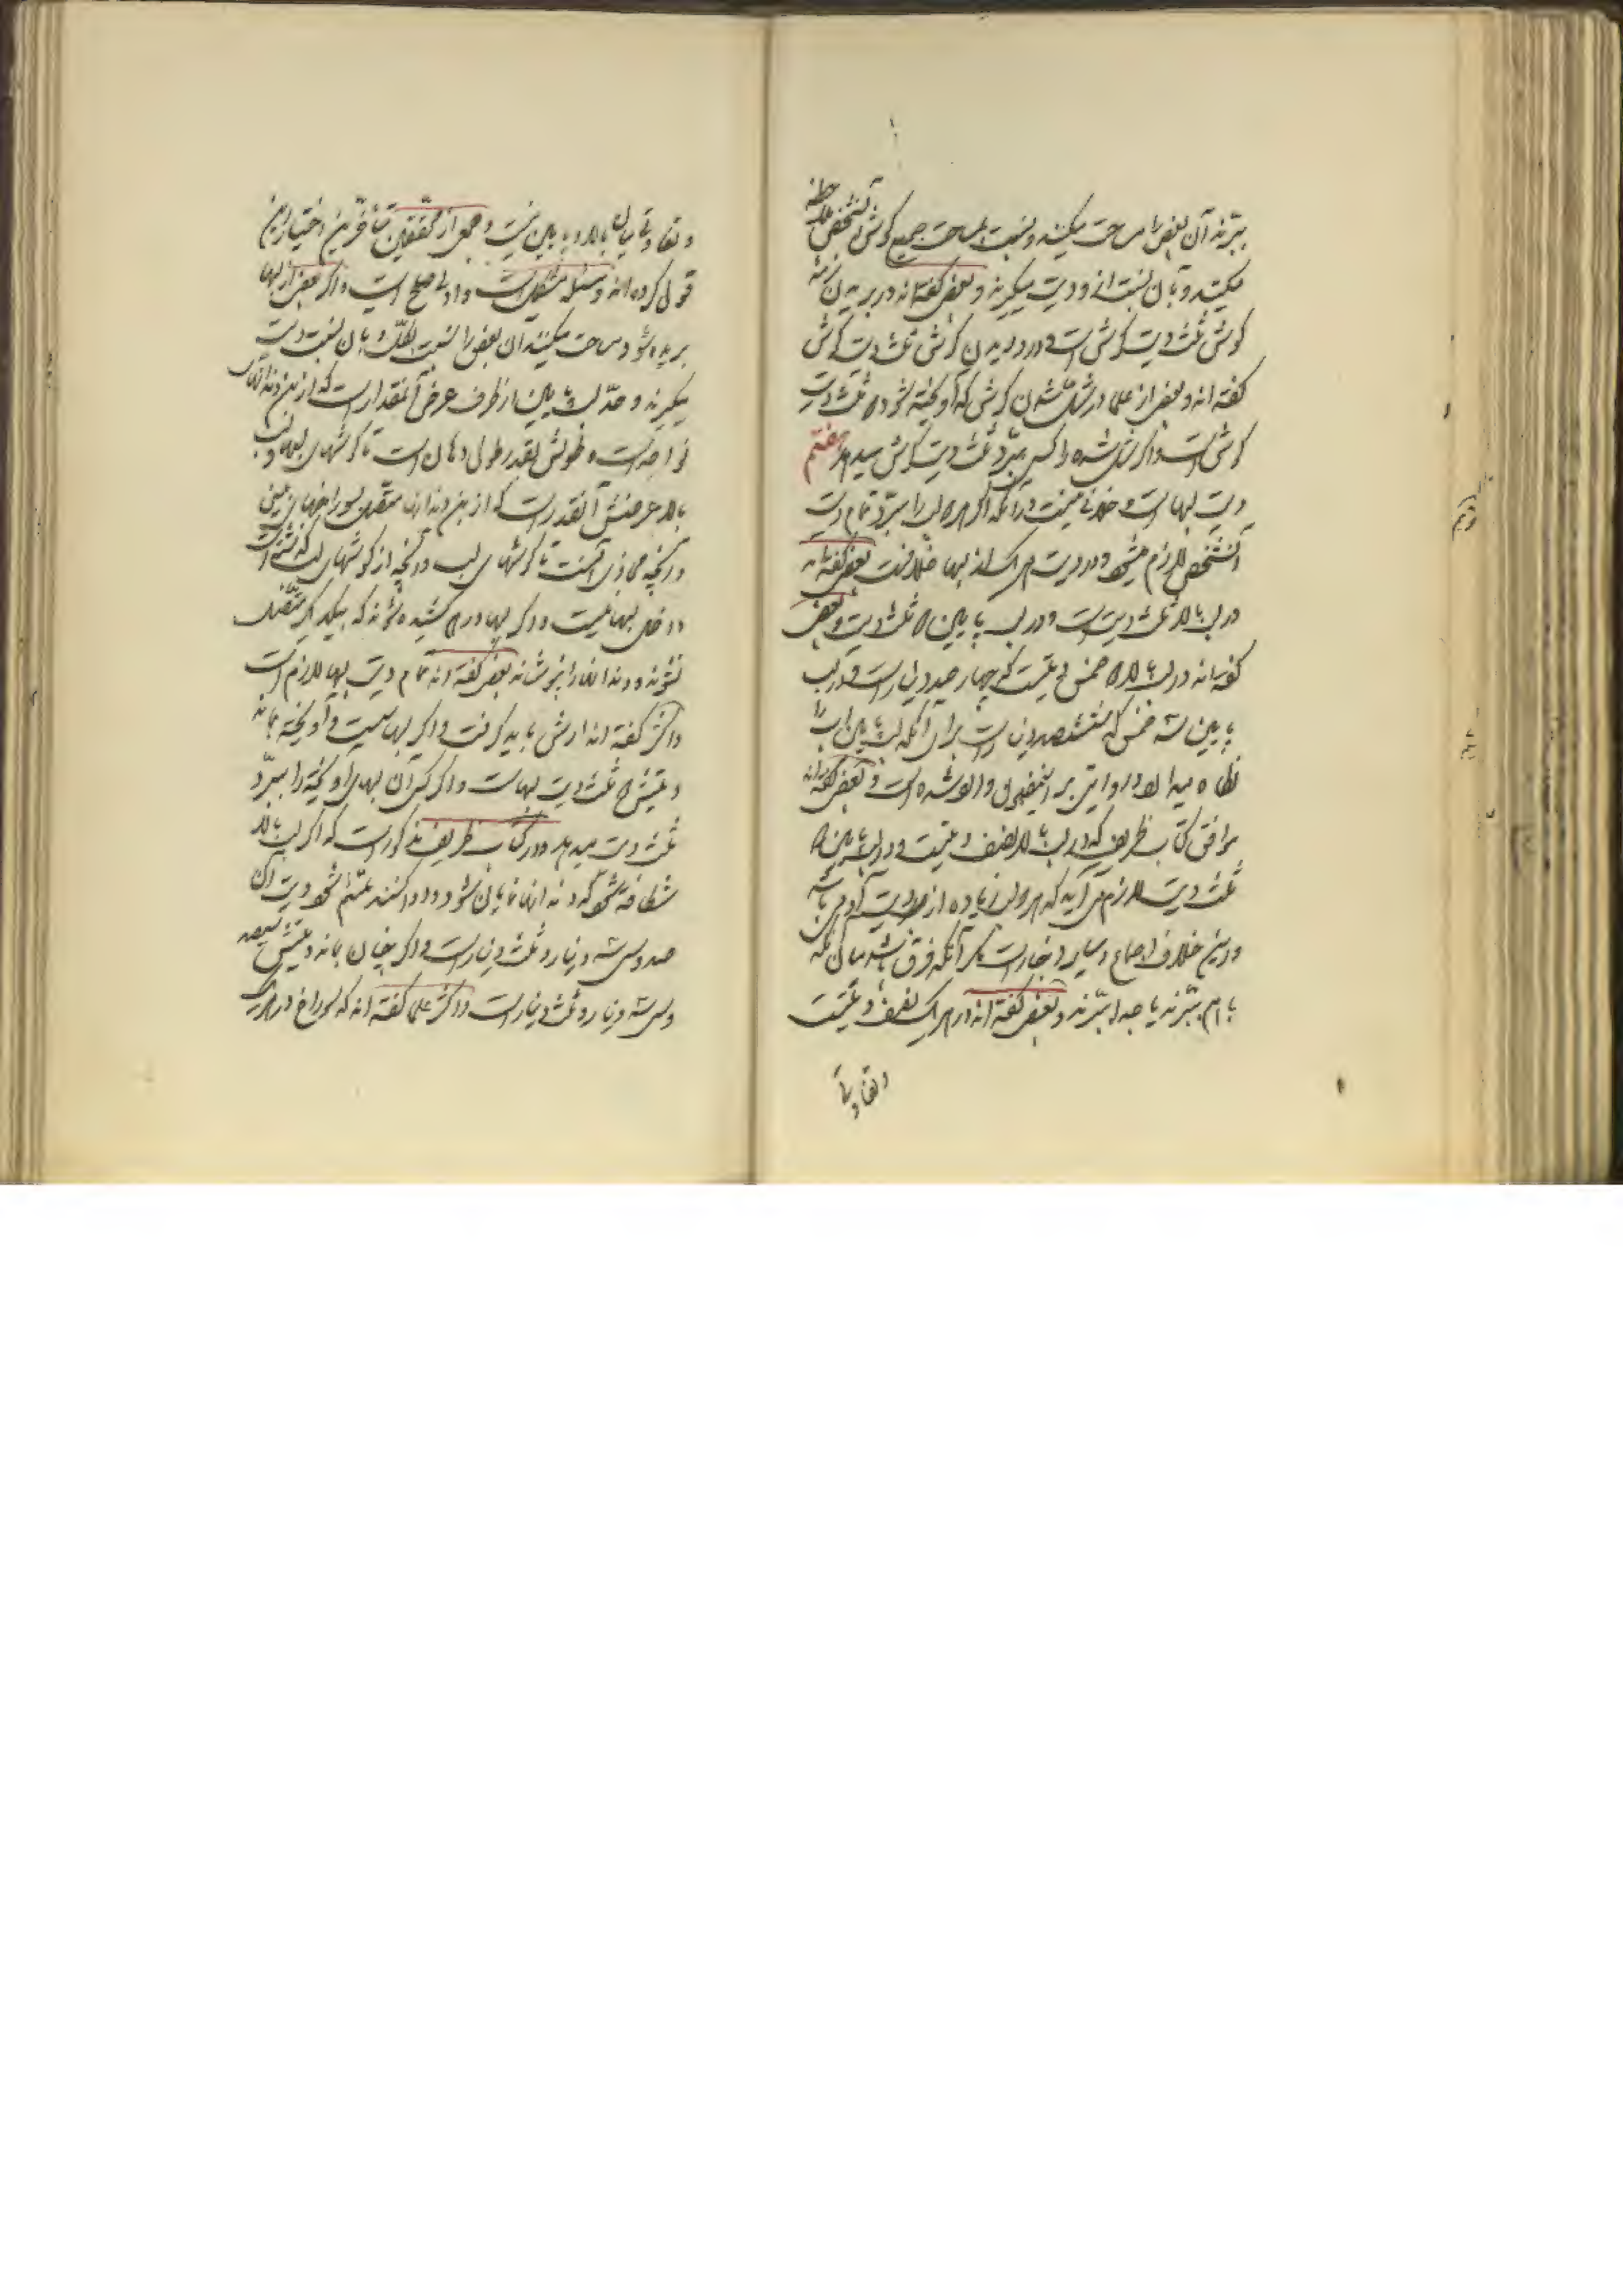 ببرند آن بعض را مساحت میکنند و نسبت بمساحت جمیع کوش آنشخص ملاحظه
میکنند و بآن نسبت از دیت میکیرند و بعضی کفته‌اند در بریدن نرمه
کوش ثلث دیت کوش است و در دریدن کوش ثلث دیت کوش
کفته‌اند و بعضی از علما در شل شدن کوش که آویخته شود دو ثلث دیت
کوش است و اکر شل شده را کسی ببرد ثلث دیت کوش میدهد هفتم
دیت لبهاست و خلافی نیست در آنکه اکر هر دو لب را ببرد تمام دیت
آنشخص لازم میشود و در دیت هر یک از لبها خلافست بعضی کفته‌اند
در لب بالا ثلث دیت است و در لب پایین دو ثلث دیت و بعضی
کفته‌اند در لب بالا دو خمس دیتست که چهار صد دینار است و در لب
پایین سه خمس که ششصد دینار است برای آنکه لب پایین آب را
نکاه میدارد و روایتی بر این تفصیل وارد شده است و بعضی کفته‌اند
موافق کتاب ظریف که در لب بالا نصف دیتست و در لب پایین دو
ثلث دیت لازم می‌آید که هر دو لب زیاده از دیت آدمی باشد
و این خلاف اجماع و سایر اخبار است مکر آنکه فرق باشد میان آنکه
با هم ببرند یا جدا ببرند و بعضی کفته‌اند در هر یک نصف دیتست
و تفاوتی
و تفاوتی میان بالا و پایین نیست و جمعی از محققین متأخرین اختیار این
قول کرده‌اند و مسئله مشکل است و اولی صلح است و اکر بعضی از لبها
بریده شود مساحت میکنند آن بعض را نسبت بکل و بآن نسبت دیت
میکیرند و حد لب پایین از طرف عرض آنمقدار است که از بن دندانها
جدا است و طولش بقدر طول دهان است تا کوشهای لبها و لب
بالا عرضش آنقدر است که از بن دندانها متصل بسوراخهای بینی
و آنچه محاذی آنست تا کوشهای لب و آنچه از کوشهای لب کذشته است
داخل لبها نیست و اکر لبها درهم کشیده شوند که بیکدیکر متصل
نشوند و دندانها را نپوشانند بعضی کفته‌اند تمام دیت لبها لازم است
و اکثر کفته‌اند ارش باید کرفت و اکر لبها سست و آویخته بماند
دیتش دو ثلث دیت لبهاست و اکر کسی آن لبهای آویخته را ببرد
ثلث دیت میدهد و در کتاب ظریف مذکور است که اکر لب بالا
شکافته شود که دندانها نمایان شود و دوا کنند ملتئم شود دیت آن
صد و سی و سه دینار و ثلث دینار است و اکر چنان بماند دیتش سیصد
و سی و سه دینار و ثلث دینار است و اکثر علما کفته‌اند که سوراخ